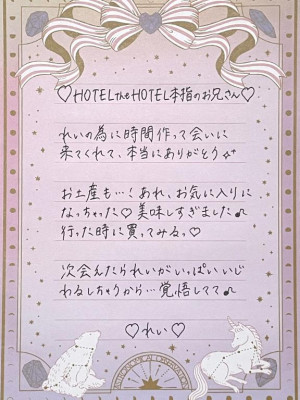 ♡HOTEL the HOTEL本指のお兄さん♡
れいの為に時間作って会いに
来てくれて、本当にありがとう
お土産も…!あれ、お気に入りに
なっちゃった♡美味しすぎました♪
行った時に買ってみるっ♡
次会えたられいがいっぱいいじ
わるしちゃうから…覚悟してて♪
♡れい♡